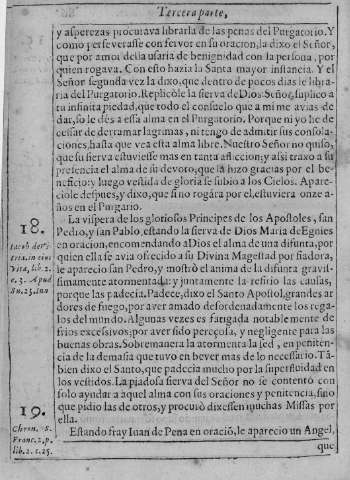 Tercera parte,
y asperezas procurava librarla de las penas del Purgatorio. Y
como perseverasse con fervor en su oracion, la dixo el Señor,
que por amor della usaria de benignidad con la persona, por
quien rogava. Con esto hazia la Santa mayor instancia. Y el
Señor segunda vez la dixo, que dentro de pocos dias le libra-
ria del Purgatorio. Replicòle la sierva de Dios: Señor, suplico a
tu infinita piedad, que todo el consuelo que a mi me avias de
dar, so le dès a essa alma en el Purgatorio. Porque ni yo he de
cessar de derramar lagrimas, ni tengo de admitir sus consola-
ciones, hasta que vea esta alma libre. Nuestro Señor no quiso,
que su sierva estuviesse mas en tanta afliccion; y assi traxo a su
presencia el alma de su devoto, que la hizo gracias por el be-
neficio: y luego vestida de gloria se subio a los Cielos. Apare-
ciole despues, y dixo, que si no rogára por el, estuviera onze a-
ños en el Purgario.
18.
La vispera de los gloriosos Principes de los Apostoles, san
Pedro, y san Pablo, estando la sierva de Dios Maria de Egnies
en oracion, encomendando a Dios el alma de una difunta, por
quien ella se avia ofrecido a su Divina Magestad por fiadora,
le aparecio san Pedro, y mostrò el anima de la difunta gravis-
simamente atormentada: y juntamente la resirio las causas,
porque las padecia. Padece, dixo el Santo Apostol, grandes ar
dores de fuego, por aver amado desordenadamente los rega-
los del mundo. Algunas vezes es fatigada notablemente de
frios excessivos; por aver sido perezosa, y negligente para las
buenas obras. Sobremanera la atormenta la sed, en peniten-
cia de la demasia que tuvo en bever mas de lo necessario. Tã-
bien dixo el Santo, que padecia mucho por la superfluidad en
los vestidos. La piadosa sierva del Señor no se contentò con
solo ayudar a aquel alma con sus oraciones y penitencia, sino
que pidio las de otros, y procurò dixessen muchas Missas por
ella.
19.
Chron. S.
Franc. 2. p.
lib. 2. c. 25.
Estando fray Iuan de Pena en oraciõ, le aparecio un Angel,
que